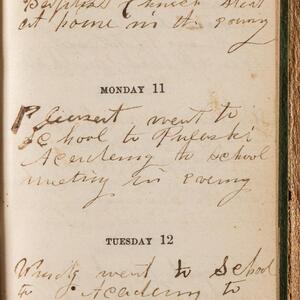 Baptist Church Staid
at home in the evening
MONDAY 11
Pleasent went to
School to Pulaski
Academy to School
meeting in evening
TUESDAY 12
Windy went to School
to Academy to